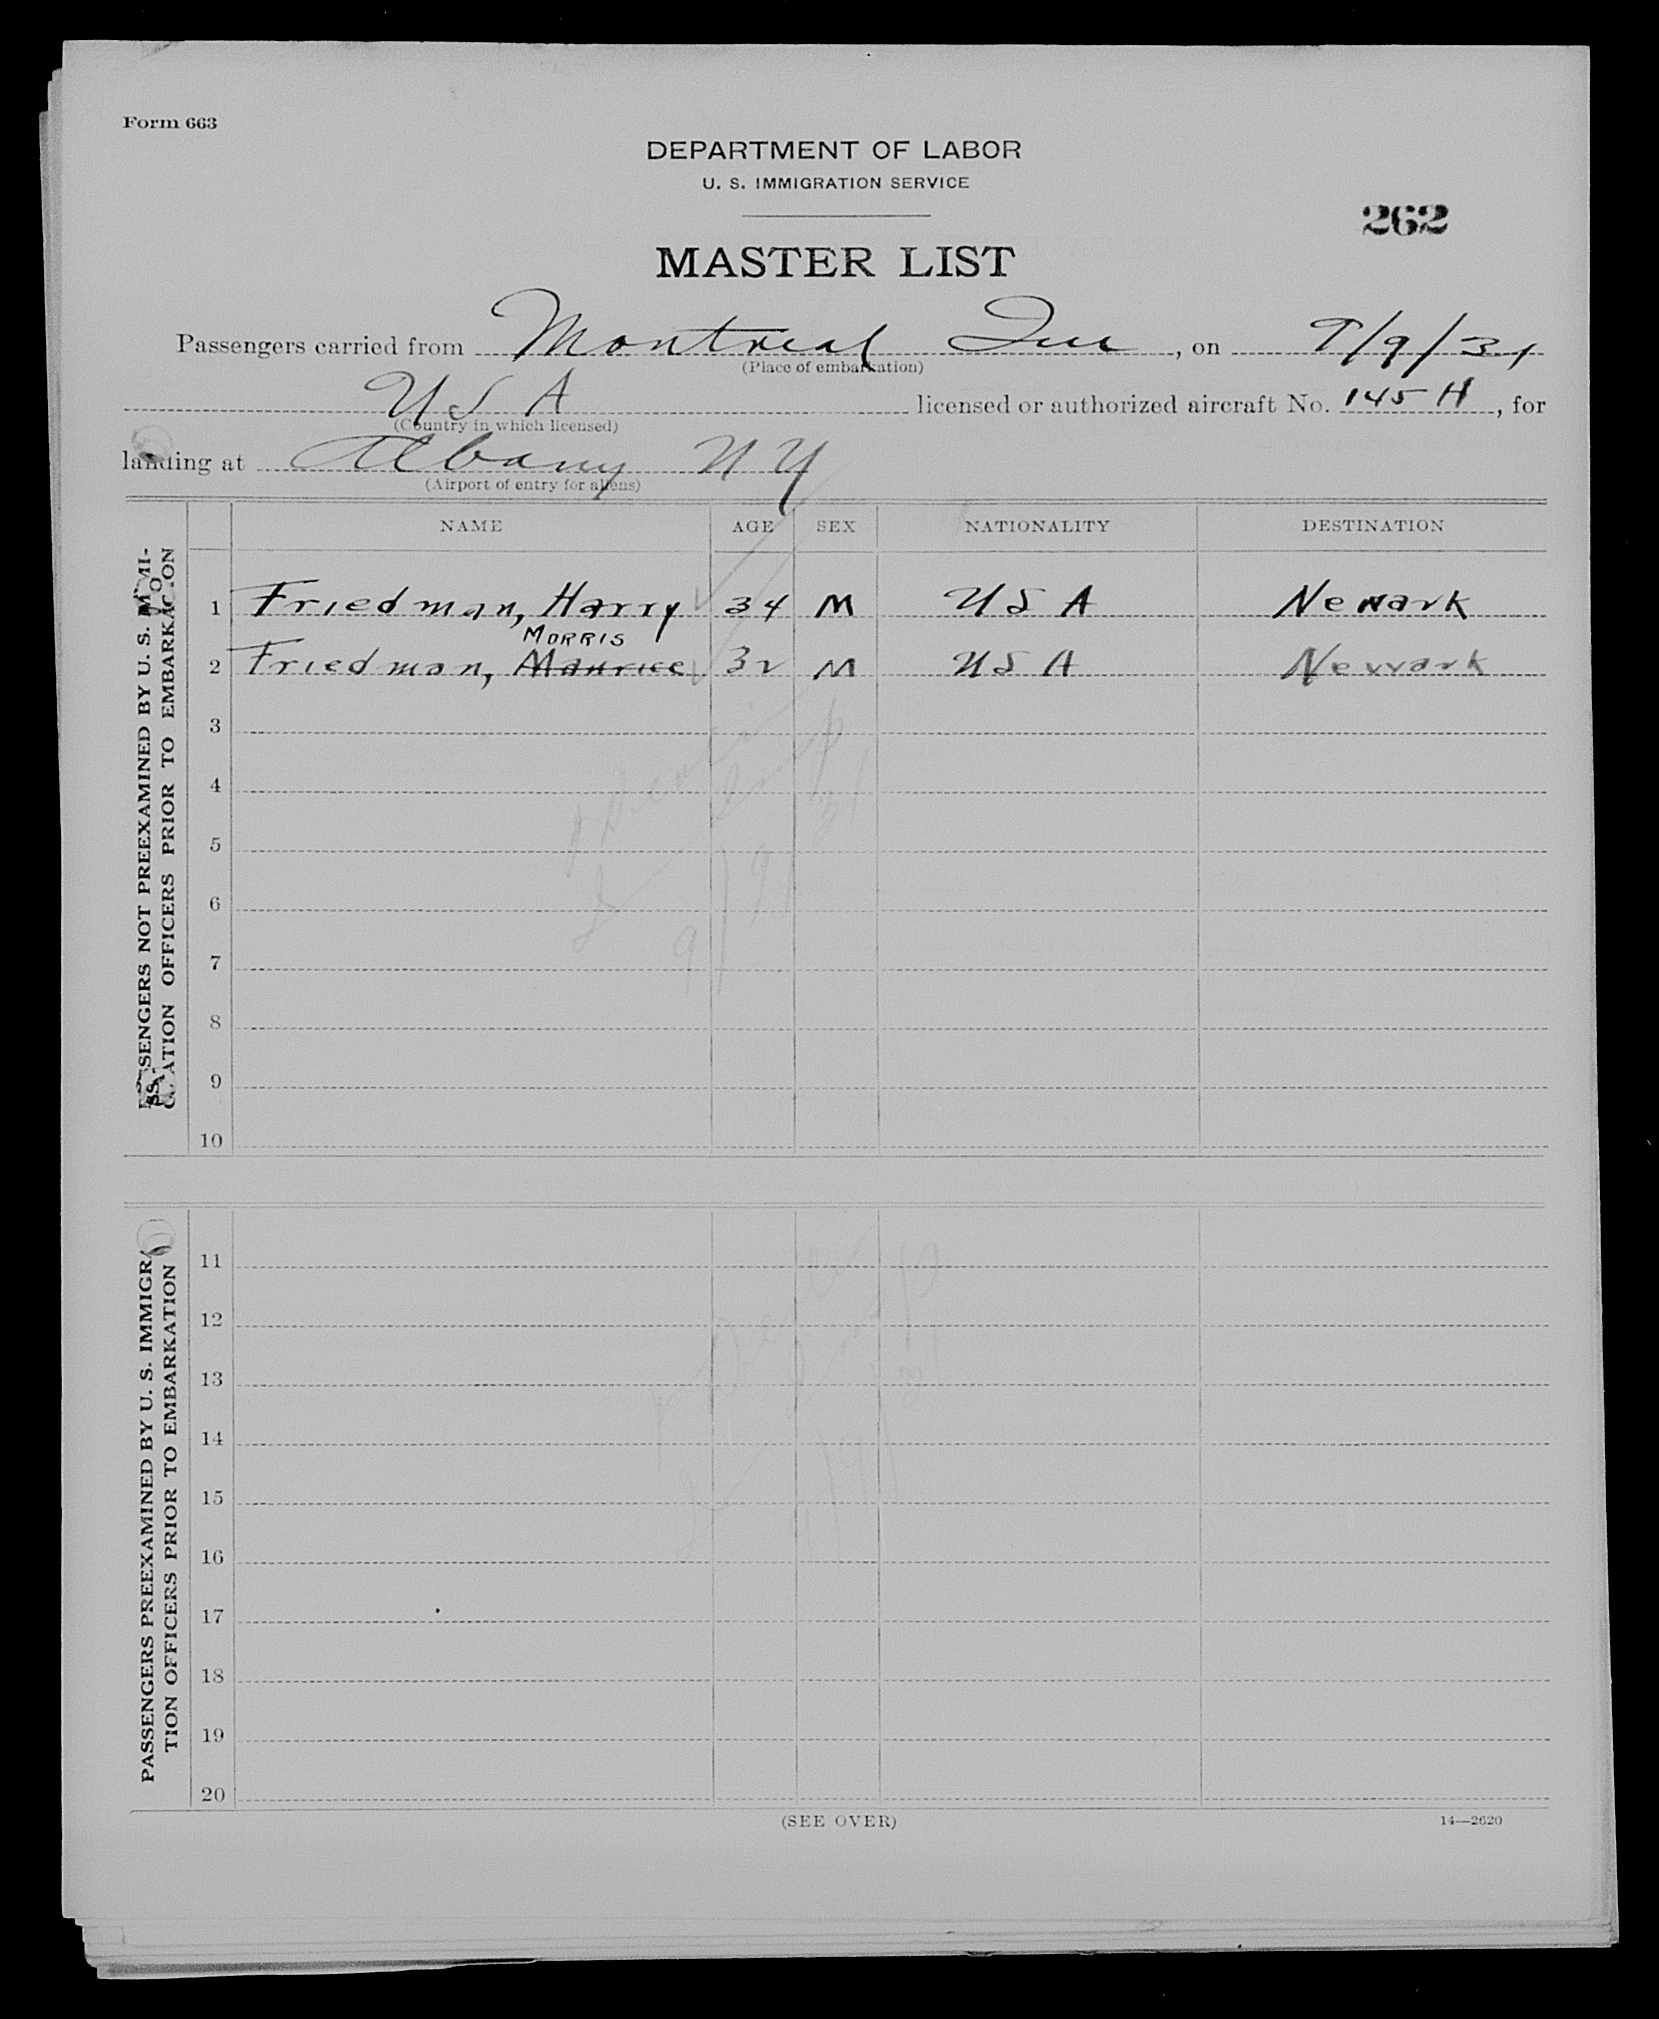 Form 663
DEPARTMENT OF LABOR
U. S. IMMIGRATION SERVICE
262
MASTER LIST
Passengers carried from Montreal Que, on 9/9/31
(Place of embarkation)
U S A licensed or authorized aircraft No. 145 H, for
(Country in which licensed)
landing at Albany N Y
(Airport of entry for aliens)
NAME AGE SEX NATIONALITY DESTINATION
1 Friedman, Harry 34 M U S A Newark
MORRIS
2 Friedman, Maurice 32 M U S A Newark
3
4
5
6
7
8
9
10
PASSENGERS NOT PREEXAMINED BY U. S. IMMI-
GRATION OFFICERS PRIOR TO EMBARKATION
11
12
13
14
15
16
17
18
19
20
PASSENGERS PREEXAMINED BY U. S. IMMIGRA
TION OFFICERS PRIOR TO EMBARKATION
(SEE OVER)
14—2620